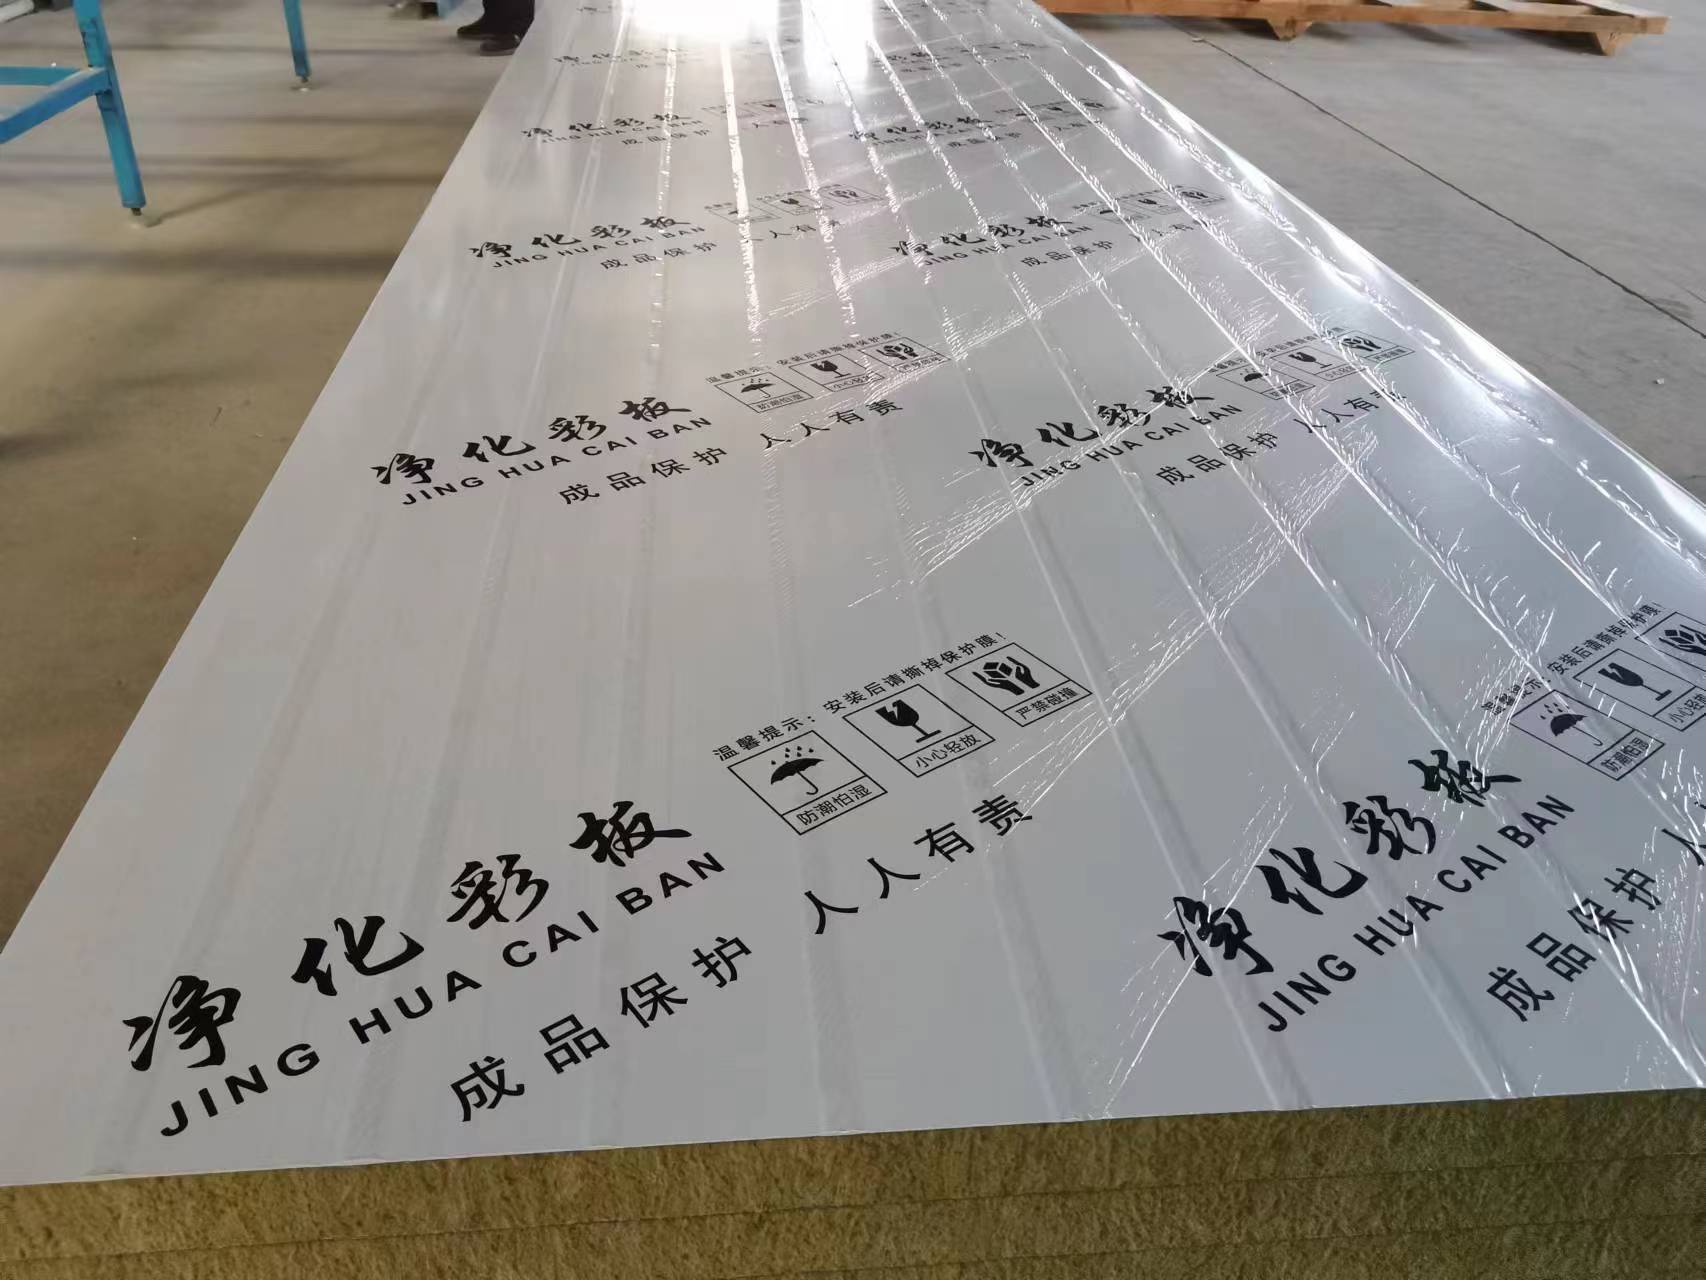 净化彩板
JING HUA CAI BAN
成品保护 人人有责
净化彩板
JING HUA CAI BAN
成品保护 人人有责
净化彩板
JING HUA CAI BAN
成品保护 人人有责
净化彩板
JING HUA CAI BAN
成品保护 人人有责
温馨提示：安装后请撕掉保护膜！
防潮怕湿
小心轻放
净化彩板
JING HUA CAI BAN
成品保护 人人有责
温馨提示：安装后请撕掉保护膜！
防潮怕湿
小心轻放
严禁碰撞
净化彩板
JING HUA CAI BAN
成品保护 人
温馨提示：安装后请撕掉保护膜！
防潮怕湿
小心轻放